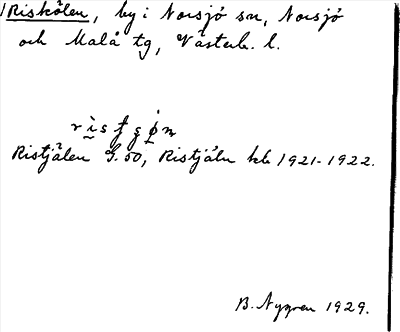 Riskölen, by i Norsjö sn, Norsjö
och Malå tg, Västerb. l.
Ristjälen G. 50, Ristjäln kb 1921-1922.
B. Nygren 1929.